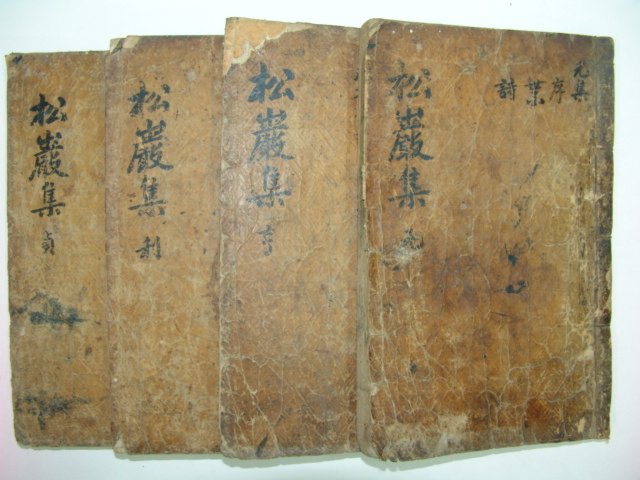 松巖集 元
元集
序
葉
詩
松巖集 亨
松巖集 利
松巖集 貞